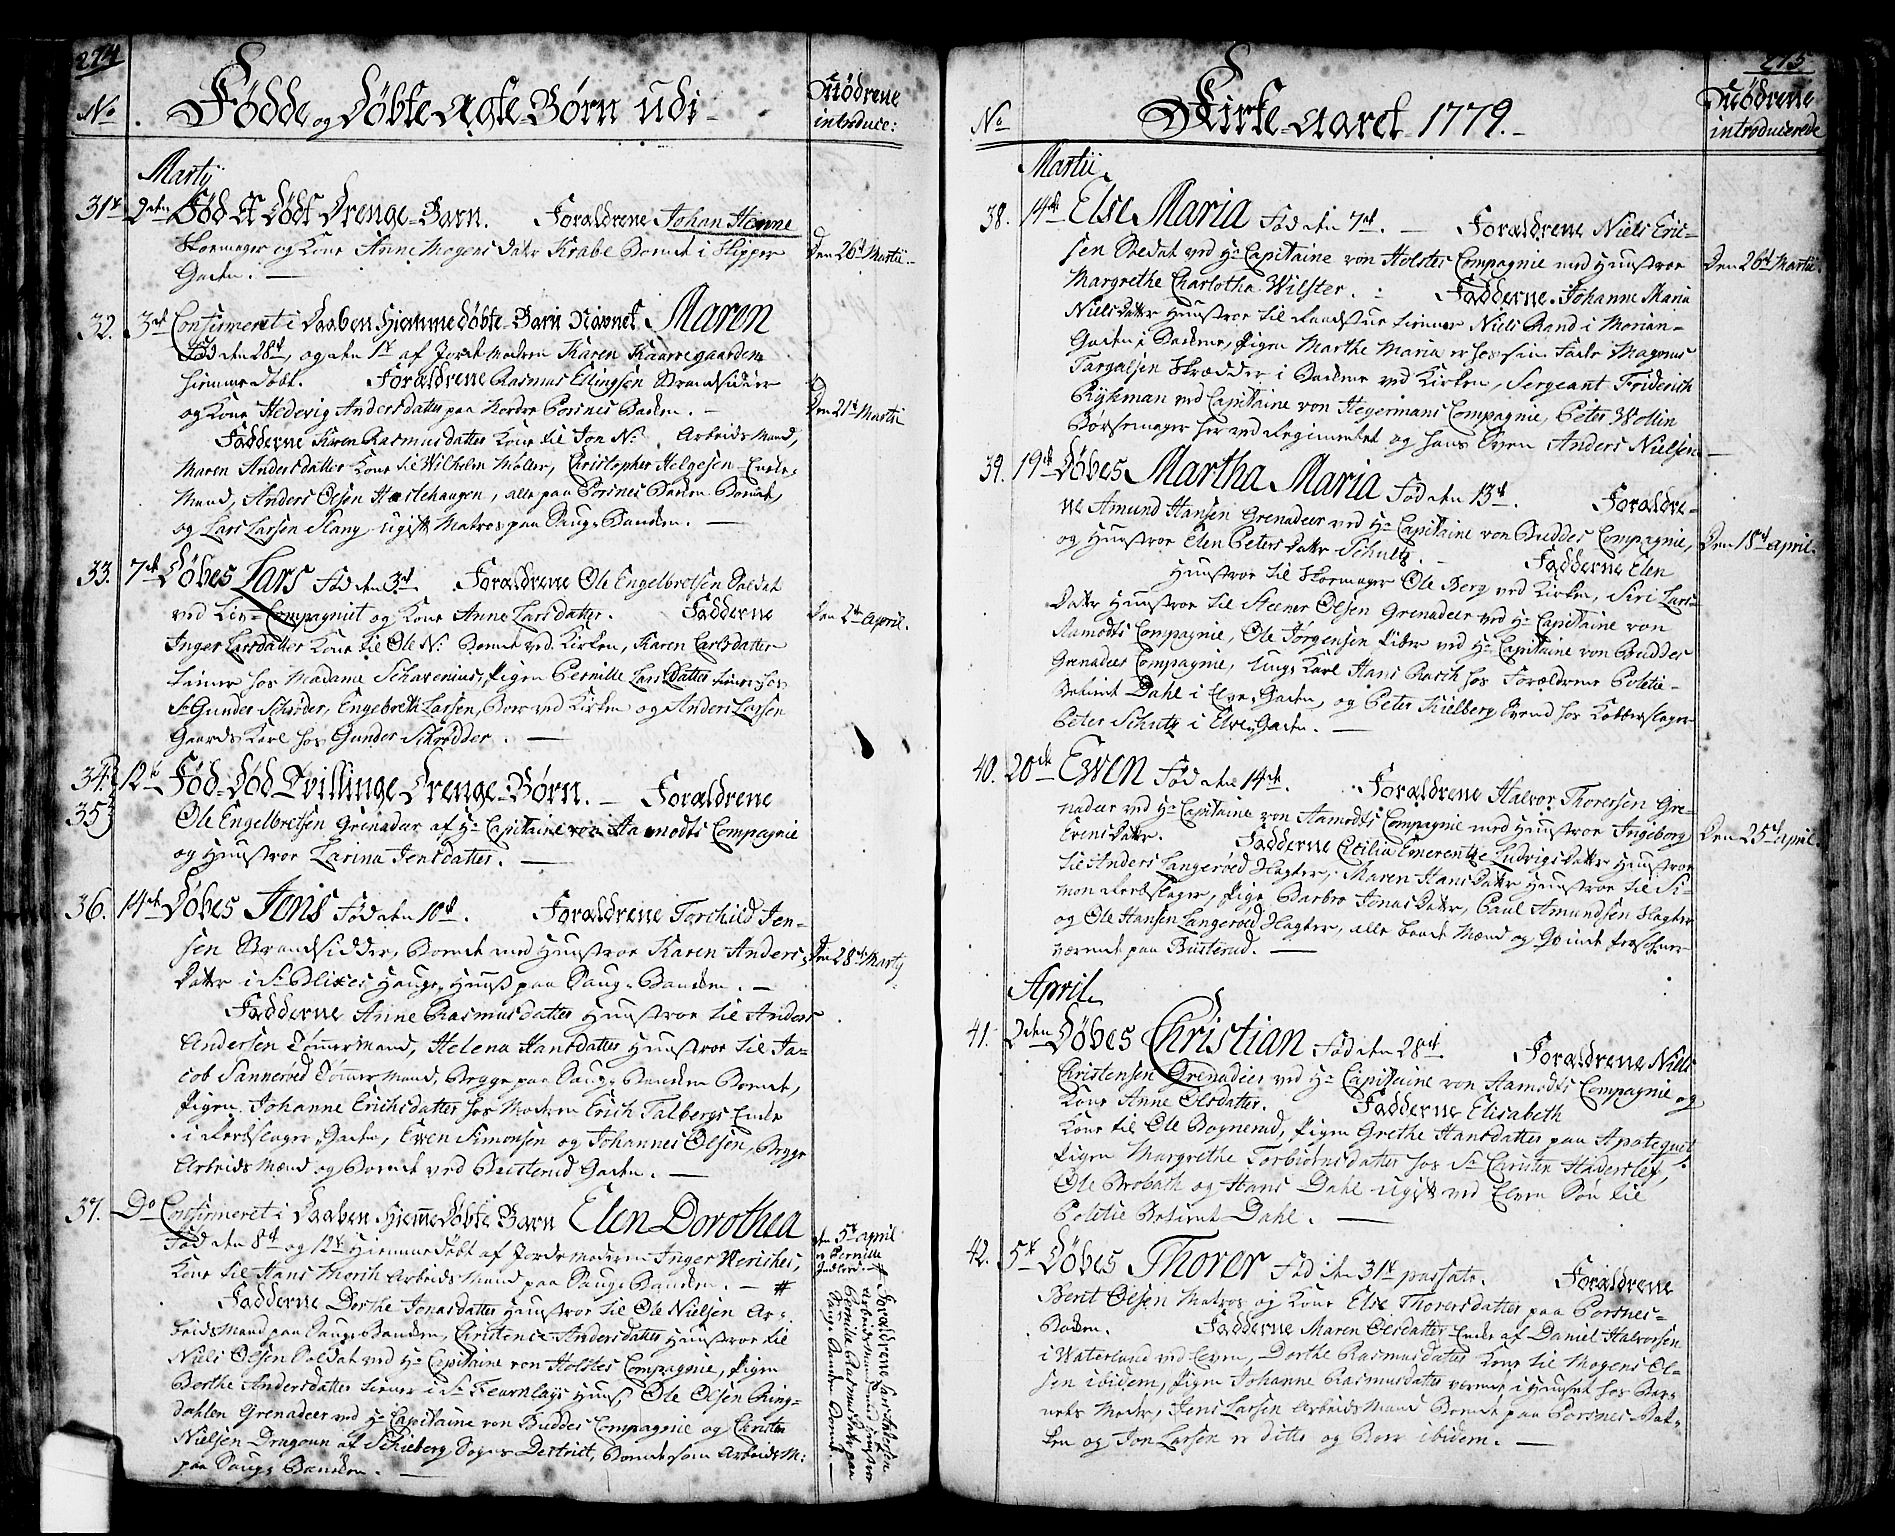 274
No. Fødde og Døbte Ægte-Børn udi - Mødrene introduce:
Martij
31te 2den Fød Et Dødt Drenge-Barn. Forældrene Johan Henne
Skoemager og Kone Anne Mogensdatr Krabe Boende i Skipper Den 26de Martii
Gaden. —
32. 3de Confirmeret i Daaben Hjemmedøbte-Barn Navnet Maren
Fød den 28de, og den 1te af Jordemodren Karen Kaarregaarden
hiemme døbt. Forældrene Rasmus Eslingsen Strandsidder
og Kone Hedevig Andersdatter paa Nordre Porsnes Banken. — Den 21de Martii
Fadderne Karen Rasmusdatter Kone til Jon N: Arbeids Mand,
Maren Andersdatter Kone til Wilhelm Møler, Christopher Helgesen Enke-
Mand, Anders Olsen Hastehaugen, alle paa Porsnes Banken Boende,
og Lars Larsen Slang ugift Matros paa Saugs Banken. —
33. 7de Døbes Lars Fød den 3de Forældrene Ole Engelbretsen Soldat
ved Liv-Compagniet og Kone Anne Larsdatter. Fadderne Den 2de April.
Inger Larsdatter Kone til Ole N: Boende ved Kirken, Karen Carlsdatter
tiener hos Madame Schavenius, Pigen Pernille Larsdatter tiener hos
Sr Gunder Schrøder, Engebreth Larsen, Boer ved Kirken og Anders Larsen
Gaards Karl hos Gunder Schrødder. —
34. 12te Fød-Død Tvillinge Drenge-Børn. — Forældrene
35 Ole Engelbretsen Grenadeer af Hr Capitaine von Aamodts Compagnie
og Hunstroe Larina Jensdatter. —
36. 14de Døbes Jens Fød den 10de. Forældrene Torchild Jen-
sen Strandsidder, Boende med Hunstroe Karen Anders- Den 28de Martij
datter i Sr Blixes Hauge, Huus paa Saugs Banken. —
Fadderne Anne Rasmusdatter Hunstroe til Anders
Andersen Tømmermand, Helena Hansdatter Hunstroe til Ja-
cob Sannerød Tømmermand, Brygge paa Saugs Banken Boende,
Pigen Johanne Erichsdatter hos Modren Erich Talbergs Enke
i Færbslager Gaden, Even Simonsen og Johannes Olsen, Brygge
Arbeids Mænd og Boende ved Busterud Gaden. —
37. Do Confirmeret i Daaben Hjemme Døbte Barn Elen Dorothea
Fød den 8de og 12te Hiemmedøbt af Jordemodren Inger Weriches, den 5te April
Kone til Hans Morch Arbeids Mand paa Saugs Banken. — # er Pernille
Fadderne Dorthe Jonasdatter Hunstroe til Ole Nielsen Ar-
beids Mand paa Saugs Banken, Christence Andersdatter Hunstroe til
Niels Olsen Soldat ved Hr Capitaine von Holstes Compagnie, Pigen
Berthe Andersdatter tiener i Sr Fearnlays Huus, Ole Olsen Ring-
dahlen Grenadeer ved Hr Capitaine von Buddes Compagnie og Christen
Nielsen Dragoun af Schieberg Sogns Destrict, Boende som Arbeids M:
paa Saugs Banken. —
# Forældrene
Arbeids Mand Hunstroe
Pernille Rasmusdatter paa
Saugs Banken Boende. —
275
No Kirke-Aaret 1779. — Mødrene introducerede
Martii
38. 14de Else Maria Fød den 7de. — Forældrene Niels Eric-
sen Soldat ved Hr Capitaine von Holstes Compagnie med Hunstroe Den 26de Martii.
Margrethe Charlotha Wilster. : Fadderne Johanne Maria
Nielsdatter Hunstroe til Niels Rand i Morian-
Gaden i Banken, Pigen Marthe Maria er hos sin Fader Magnus
Targalsen Skrædder i Banken ved Kirken, Sergeant Friderich
Rykman ved Capitaine von Hegermans Compagnie, Peter Wollin
Børsemager her ved Regimentet og hans Sven Anders Nielsen —
39. 19de Døbes Martha Maria Fød den 13de. Forældre-
ne Amund Hansen Grenadeer ved Hr Capitaine von Buddes Compagnie, Den 18de April.
og Hunstroe Elen Petersdatr Schultz. — Fadderne Elen
Hunstroe til Skoemager Ole Berg ved Kirken, Siri Lars-
datr Hunstroe til Steener Olsen Grenadeer ved Hr Capitaine von
Aamodts Compagnie, Ole Jørgensen Piber ved Hr Capitaine von Buddes
Grenadeer Compagnie, Ung Karl Hans Rasch hos Forældrene Politie-
Betient Dahl i Elve Gaden, og Peter Kielberg Svend hos Kobberslager
Peter Schutz i Elve Gaden. —
40. 20de Even Fød den 14de. Forældrene Halvor Thoresen Gre-
nadeer ved Hr Capitaine von Aamodts Compagnie med Hunstroe Ingeborg Den 25de April.
Evensdatr. Fadderne Cecilia Emerentze Ludvigsdatr Hunstroe
til Anders Langerød Flagter, Maren Hansdatr Hunstroe til Si-
mon Færbslager, Pige Barbro Jonasdatr, Paul Amundsen Flagter
og Ole Hansen Langerød Flagter, alle baade Mænd og Qvinde Persohner
værende paa Busterud. —
April
41. 2den Døbes Christian Fød den 28de. Forældrene Niels
Christensen Grenadeer ved Hr Capitaine von Aamodts Compagnie og
Kone Anne Olsdatter. Fadderne Elisabeth
Kone til Ole Bognerud, Pigen Grethe Hansdatter paa Apotequet,
Pigen Margrethe Torbiørnsdatter hos Sr Carsten Haderslef,
Ole Brobath og Hans Dahl ugift ved Elven Søn til
Politie Betient Dahl. —
42. 5te Døbes Thorer Fød den 31te passato. Forældrene
Berit Olsen Matros og Kone Else Thorersdatter paa Porsnes-
Banken. Fadderne Maren Olsdatter Enke af Daniel Halvorsen
i Waterland ved Elven, Dorthe Rasmusdatter Kone til Mogens Ol-
sen ibidem, Pigen Johanne Rasmusdatter værende i Huuset hos Bar-
nets Moder, Jens Larsen Arbeids Mand Boende paa Porsnes Ban-
ken og Jon Larsen er ditto og Boer ibidem. —